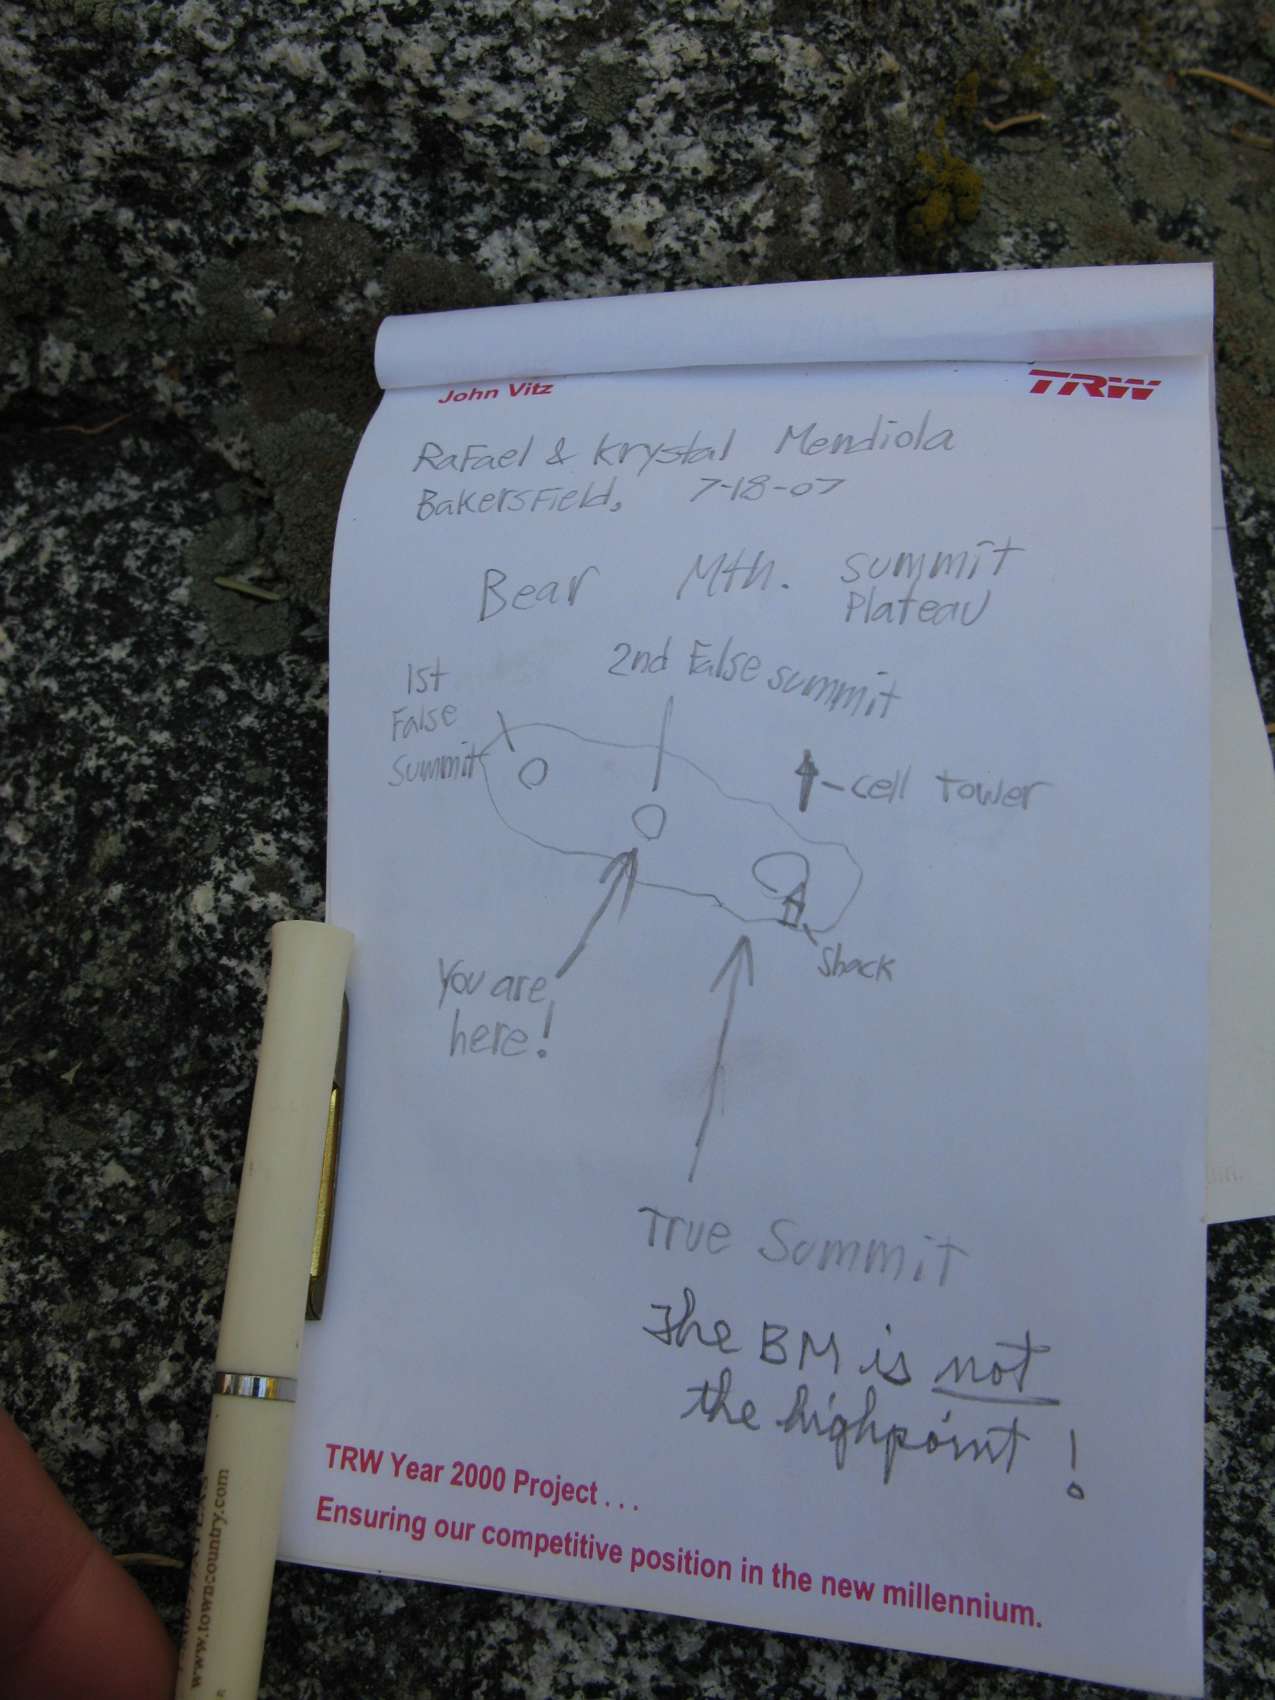 John Vitz
TRW
Rafael & Krystal Mendiola
Bakersfield, 7-18-07
Bear Mtn. summit
Plateau
1st
False
Summit
2nd False summit
cell tower
Shack
You are
here!
True Summit
The BM is not
the highpoint!
TRW Year 2000 Project . . .
Ensuring our competitive position in the new millennium.
www.towncountry.com